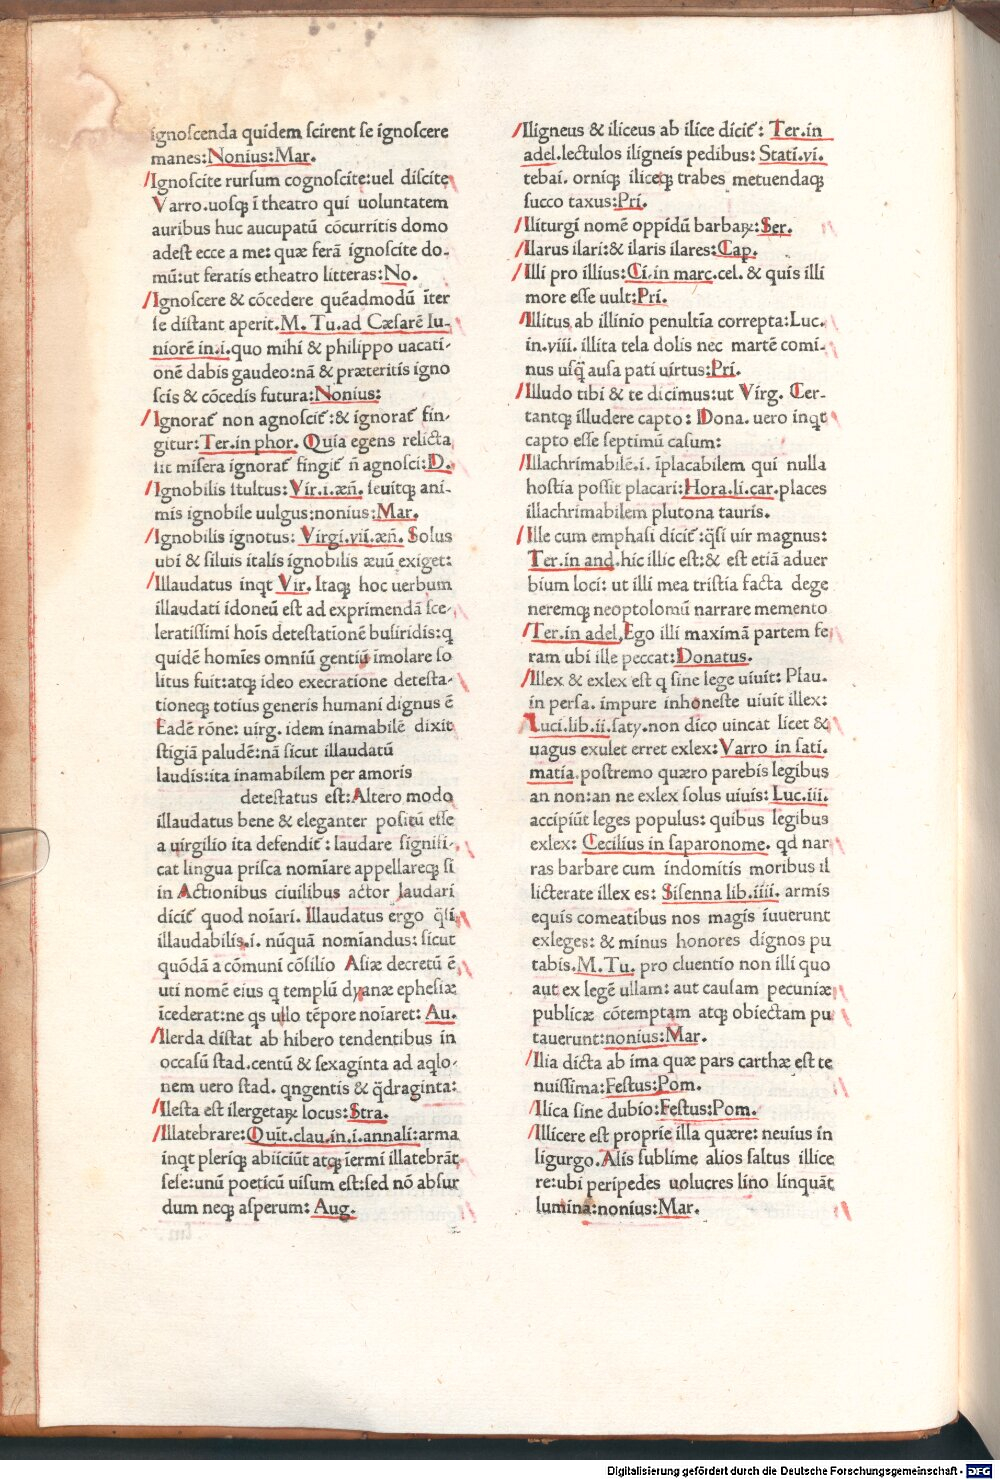 ignoſcenda quidem ſcirent ſe ignoſcere
manes:Nonius:Mar.
Ignoſcite rurſum cognoſcite:uel diſcite
Varro.uoſqꝫ ī theatro qui uoluntatem
auribus huc aucupatū cōcurritis domo
adeſt ecce a me: quæ ferā ignoſcite do-
mū:ut feratis etheatro litteras:No.
Ignoſcere & cōcedere quēadmodū īter
ſe diſtant aperit.M. Tu.ad Cæſarē Iu-
niorē in.i.quo mihi & philippo uacati-
onē dabis gaudeo:nā & præteritis igno
ſcis & cōcedis futura:Nonius:
Ignorat̄ non agnoſcit̄:& ignorat̄ fin-
gitur:Ter.in phor. Quia egens relicta
ſit miſera ignorat̄ fingit̄ n̄ agnoſci:D.
Ignobilis ſtultus:Vir.i.æn̄. ſeuitqꝫ ani-
mis ignobile uulgus:nonius:Mar.
Ignobilis ignotus: Virgi.vii.æn̄. Solus
ubi & ſiluis italis ignobilis æuū exiget:
Illaudatus inqt Vir. Itaqꝫ hoc uerbum
illaudati idoneū eſt ad exprimendā ſce-
leratiſſimi hoīs deteſtationē buſiridis:q
quidē homīes omniū gentiū īmolare ſo
litus fuit:atqꝫ ideo execratione deteſta-
tioneqꝫ totius generis humani dignus ē
Eadē rōne: uirg. idem inamabilē dixit
ſtigiā paludē:nā ſicut illaudatū
laudis:ita inamabilem per amoris
deteſtatus eſt:Altero modo
illaudatus bene & eleganter poſitū eſſe
a uirgilio ita defendit̄: laudare ſignifi-
cat lingua priſca nomīare appellareqꝫ ſi
in Actionibus ciuilibus actor laudari
dicit̄ quod noīari. Illaudatus ergo q̄ſi
illaudabilis.i. nūquā nomīandus: ſicut
quōdā a cōmuni cōſilio Aſiæ decretū ē
uti nomē eius q templū dyanæ epheſiæ
īcederat:ne qs ullo tēpore noīaret: Au.
Ilerda diſtat ab hibero tendentibus in
occaſū ſtad.centū & ſexaginta ad aqlo-
nem uero ſtad. qngentis & q̄draginta:
Ileſta eſt ilergetaꝝ locus:Stra.
Illatebrare:Quit.clau.in.i.annali:arma
inqt pleriqꝫ abiiciūt atqꝫ īermi illatebrāt
ſeſe:unū poeticū uiſum eſt:ſed nō abſur
dum neqꝫ aſperum: Aug.
Iligneus & iliceus ab ilice dicit̄: Ter.in
adel.lectulos iligneis pedibus: Stati.vi.
tebai. orniqꝫ iliceqꝫ trabes metuendaqꝫ
ſucco taxus:Pri.
Iliturgi nomē oppidū barbaꝝ:Ser.
Ilarus ilari:& ilaris ilares:Cap.
Illi pro illius:Ci.in marc.cel. & quis illi
more eſſe uult:Pri.
Illitus ab illinio penultīa correpta:Luc.
in.viii. illita tela dolis nec martē comi-
nus uſq̄ auſa pati uirtus:Pri.
Illudo tibi & te dicimus:ut Virg. Cer-
tantqꝫ illudere capto: Dona. uero inqt
capto eſſe ſeptimū caſum:
Illachrimabilē.i. īplacabilem qui nulla
hoſtia poſſit placari:Hora.li.car.places
illachrimabilem plutona tauris.
Ille cum emphaſi dicit̄:q̄ſi uir magnus:
Ter.in and.hic illic eſt:& eſt etiā aduer
bium loci: ut illi mea triſtia facta dege
neremqꝫ neoptolomū narrare memento
Ter.in adel.Ego illi maximā partem fe
ram ubi ille peccat:Donatus.
Illex & exlex eſt q ſine lege uiuit: Plau.
in perſa. impure inhoneſte uiuit illex:
Luci.lib.ii.ſaty.non dico uincat licet &
uagus exulet erret exlex: Varro in ſati.
matia.poſtremo quæro parebis legibus
an non:an ne exlex ſolus uiuis: Luc.iii.
accipiūt leges populus: quibus legibus
exlex: Cecilius in ſaparonome. qd nar
ras barbare cum indomitis moribus il
licterate illex es: Siſenna lib.iiii. armis
equis comeatibus nos magis iuuerunt
exleges: & minus honores dignos pu
tabis.M.Tu. pro cluentio non illi quo
aut ex legē ullam: aut cauſam pecuniæ
publicæ cōtemptam atqꝫ obiectam pu
tauerunt:nonius:Mar.
Ilia dicta ab ima quæ pars carthæ eſt te
nuiſſima:Feſtus:Pom.
Ilica ſine dubio:Feſtus:Pom.
Illicere eſt proprie illa quære: neuius in
ligurgo.Alis ſublime alios ſaltus illice
re:ubi peripedes uolucres lino linquāt
lumina:nonius:Mar.
Digitalisierung gefördert durch die Deutsche Forschungsgemeinschaft - DFG